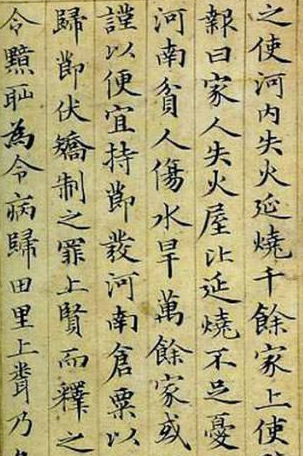 之使河內失火延燒千餘家上使
報曰家人失火屋比延燒不足憂
河南貧人傷水旱萬餘家或
謹以便宜持節發河南倉粟以
歸節伏矯制之罪上賢而釋之
令黯恥為令病歸田里上聞乃